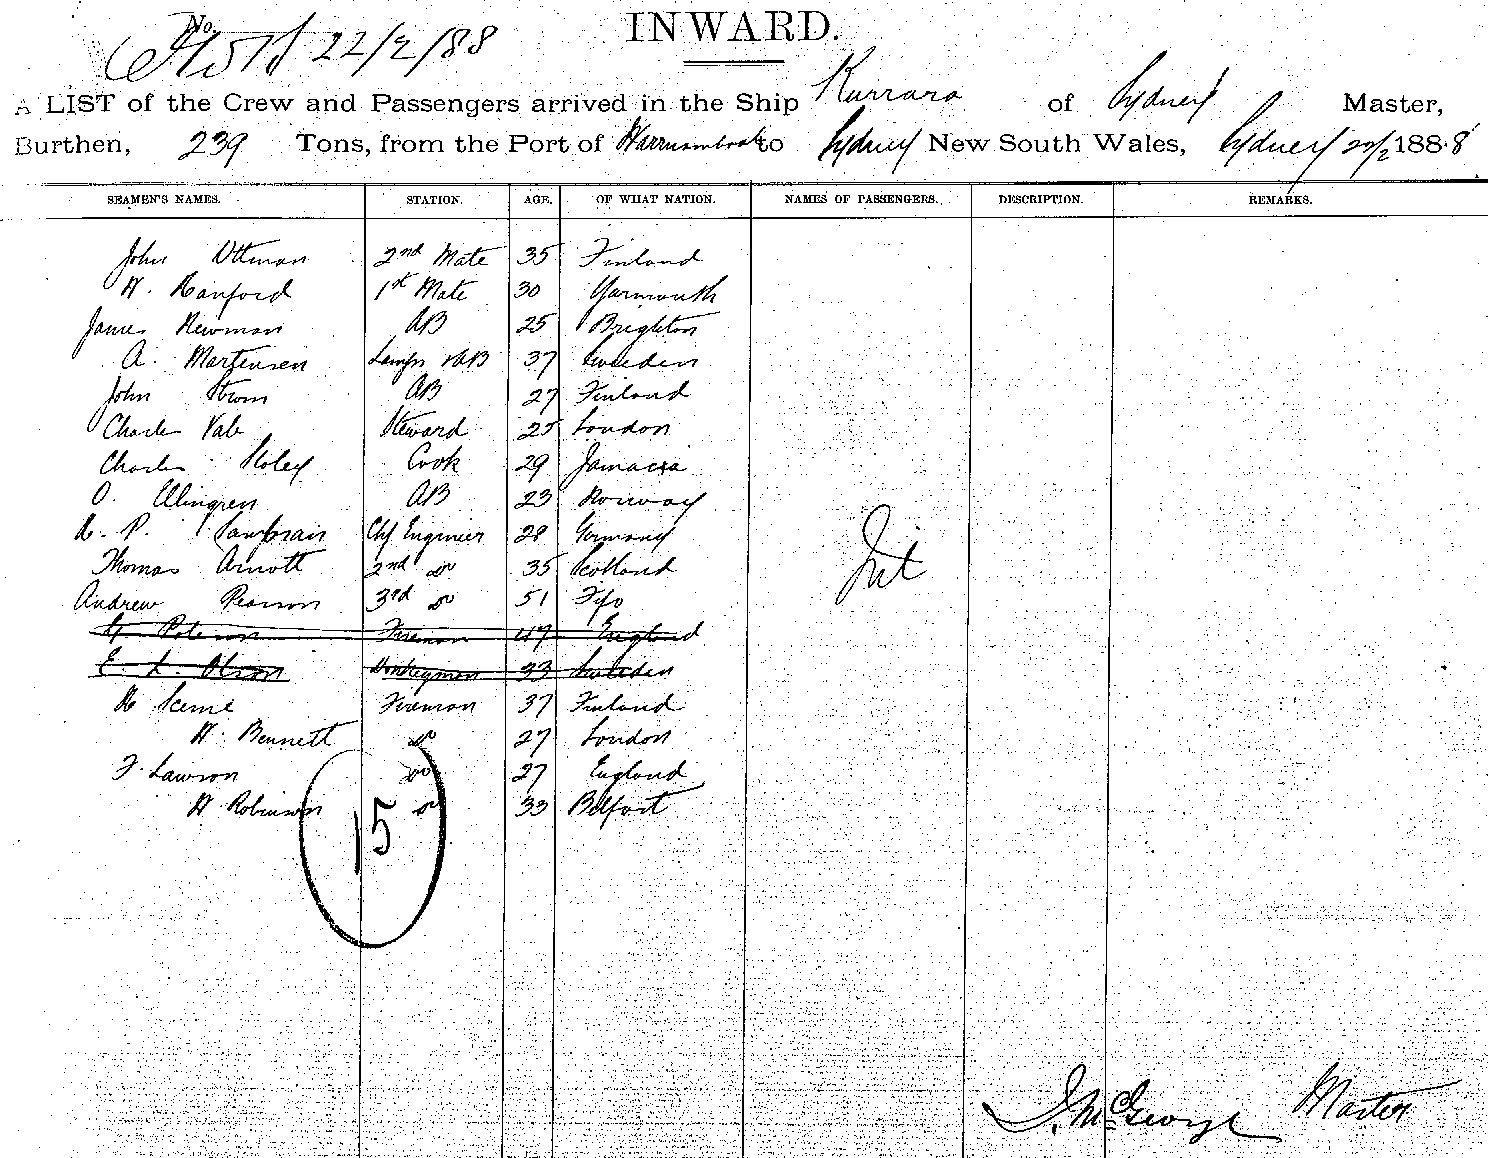 No.
22/2/88
INWARD.
A LIST of the Crew and Passengers arrived in the Ship Kurrara of Sydney Master,
Burthen, 239 Tons, from the Port of Warrnambool to Sydney New South Wales, Sydney 22/2 1888
SEAMEN'S NAMES. STATION. AGE. OF WHAT NATION. NAMES OF PASSENGERS. DESCRIPTION. REMARKS.
John Ottman 2nd Mate 35 Finland
H. Hanford 1st Mate 30 Yarmouth
James Newman AB 25 Brighton
A. Martensen Lamps & AB 37 Sweden
John Strom AB 27 Finland
Charles Vale Steward 25 London
Charles Staley Cook 29 Jamacia
O. Ellingren AB 23 Norway
P. Chf Engineer 28 Germany
Thomas Arnott 2nd do 35 Scotland
Andrew Pearson 3rd do 51 Fife
Fireman 47 England
E. L. Olson Donkeyman 33 Sweden
Fireman 37 Finland
H. Bennett do 27 London
F. Lawson do 27 England
H Robinson do 33 Belfast
15
J. McGeorge Master